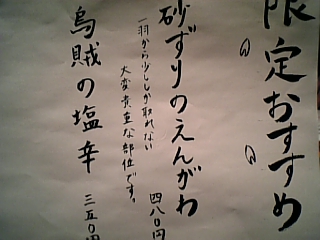 限定おすすめ
砂ずりのえんがわ
一羽から少ししか取れない
大変貴重な部位です。
四八〇円
烏賊の塩辛
三五〇円